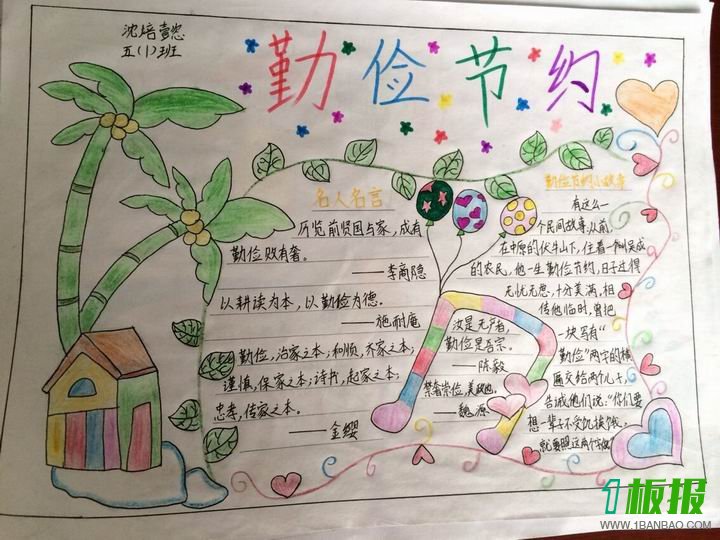 沈焙懿
五(1)班
勤俭节约
名人名言
历览前贤国与家，成有
勤俭败有奢。
——李商隐
以耕读为本，以勤俭为德。
——施耐庵
勤俭，治家之本；和顺，齐家之本；
谨慎，保家之本；诗书，起家之本；
忠孝，传家之本。
——金缨
汝是无产者，
勤俭是吾宗。
——陈毅
禁奢崇俭，美政也
——魏源
勤俭节约小故事
有这么一
个民间故事，从前，
在中原的伏牛山下，住着一个叫吴成
的农民，他一生勤俭节约，日子过得
无忧无愁，十分美满，相
传他临时，曾把
一块写有“
勤俭”两字的横
匾交给两个儿子，
告诫他们说：“你们要
想一辈子不受饥挨饿，
就要照这两个字做”
1板报
WWW.1BANBAO.COM